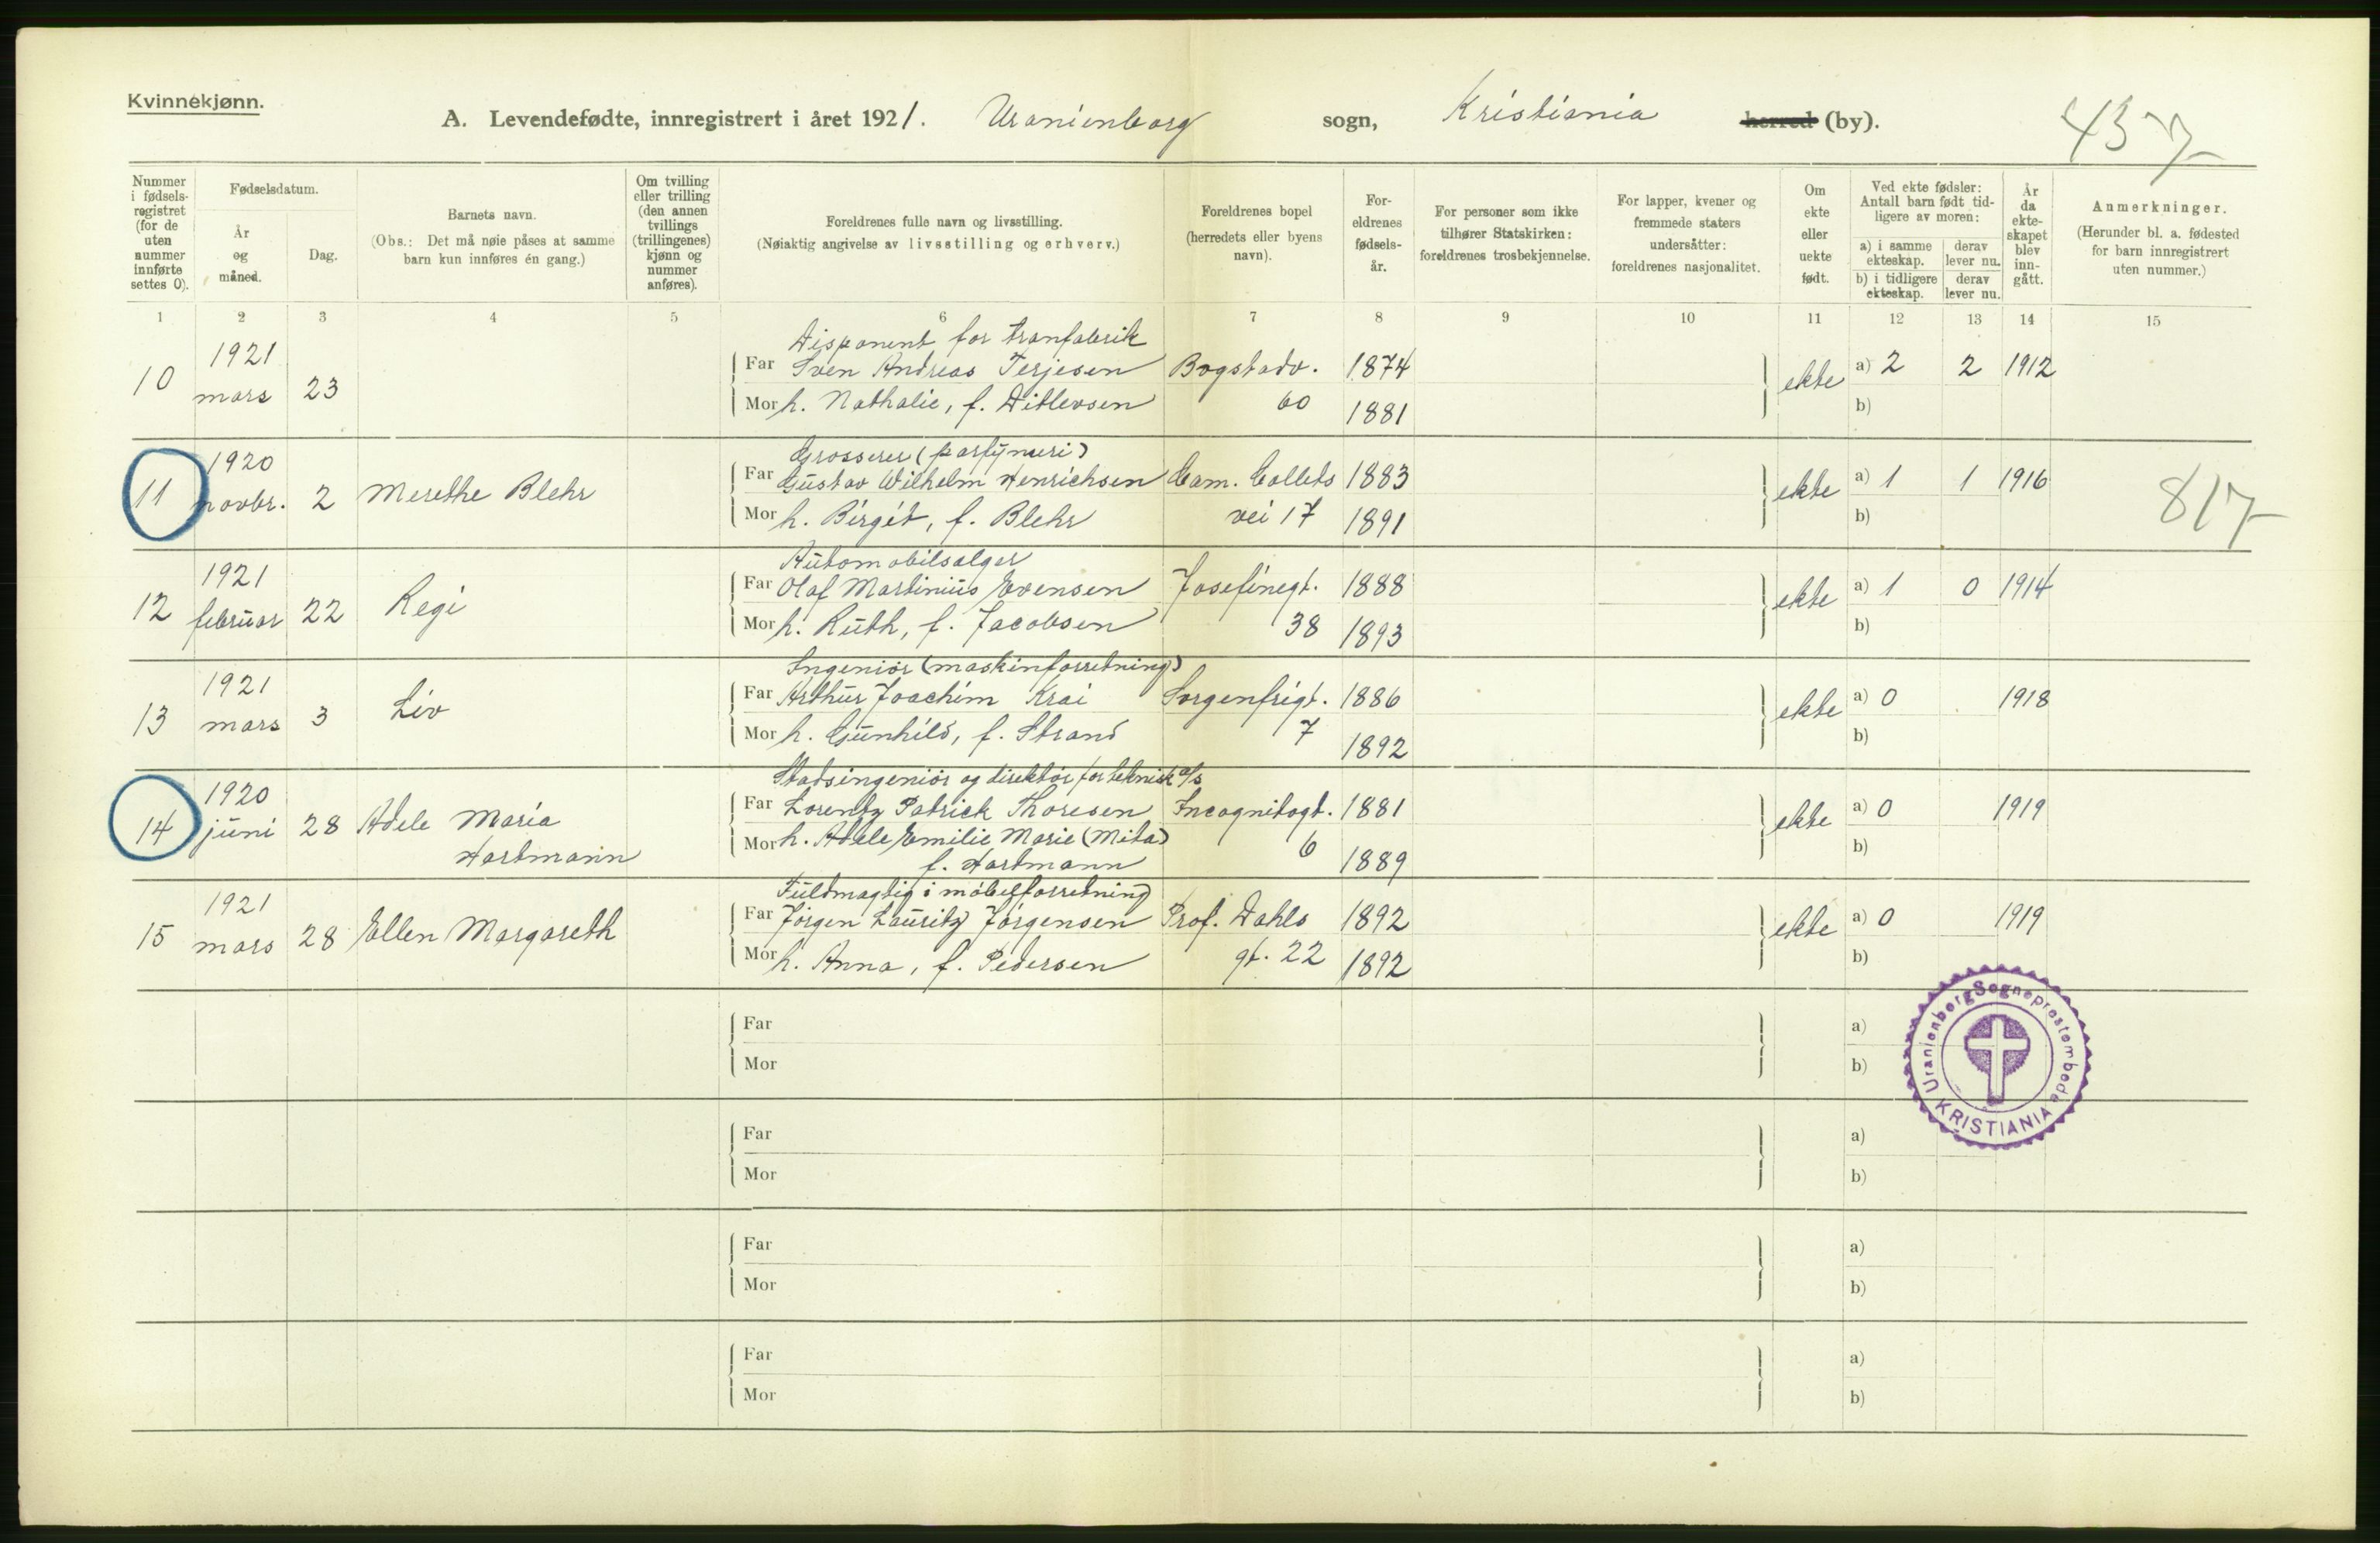 Kvinnekjønn.
A. Levendefødte, innregistrert i året 1921. Uranienborg sogn, Kristiania herred (by).
437
Nummer i fødselsregistret (for de uten nummer innførte settes 0).
Fødselsdatum.
År og måned.
Dag.
Barnets navn.
(Obs.: Det må nøie påses at samme barn kun innføres én gang.)
Om tvilling eller trilling (den annen tvillings (trillingenes) kjønn og nummer anføres).
Foreldrenes fulle navn og livsstilling.
(Nøiaktig angivelse av livsstilling og erhverv.)
Foreldrenes bopel (herredets eller byens navn).
Foreldrenes fødselsår.
For personer som ikke tilhører Statskirken: foreldrenes trosbekjennelse.
For lapper, kvener og fremmede staters undersåtter: foreldrenes nasjonalitet.
Om ekte eller uekte født.
Ved ekte fødsler: Antall barn født tidligere av moren:
a) i samme ekteskap.
derav lever nu.
b) i tidligere ekteskap.
derav lever nu.
År da ekteskapet blev inngått.
Anmerkninger.
(Herunder bl. a. fødested for barn innregistrert uten nummer.)
1 2 3 4 5 6 7 8 9 10 11 12 13 14 15
Disponent for tranfabrik
10 1921 mars 23
Far Sven Andreas Terjesen Bogstadv. 1874 ekte a) 2 2 1912
Mor h. Nathalie, f. Ditlevsen 60 1881 b)
Grosserer (parfymeri)
11 1920 novbr. 2 Merethe Blehr
Far Gustav Wilhelm Henrichsen Cam. Collets 1883 ekte a) 1 1 1916
Mor h. Birgit, f. Blehr vei 17 1891 b)
817
Automobilselger
12 1921 februar 22 Regi
Far Olaf Martinius Evensen Josefinegt. 1888 ekte a) 1 0 1914
Mor h. Ruth, f. Jacobsen 38 1893 b)
Ingeniør (maskinforretning)
13 1921 mars 3 Liv
Far Arthur Joachim Krai Sorgenfrigt. 1886 ekte a) 0 1918
Mor h. Gunhild, f. Strand 7 1892 b)
Stadsingeniør og direktør for teknisk a/s
14 1920 juni 28 Adele Maria Hartmann
Far Lorentz Patrick Thoresen Incognitogt. 1881 ekte a) 0 1919
Mor h. Adele Emilie Marie (Mita) 6 1889 b)
f. Hartmann
Fuldmagtig i møbelforretning
15 1921 mars 28 Ellen Margareth
Far Jørgen Lauritz Jørgensen Prof. Dahls 1892 ekte a) 0 1919
Mor h. Anna, f. Pedersen gt. 22 1892 b)
Uranienborg Sogneprestembede
KRISTIANIA
Far a)
Mor b)
Far a)
Mor b)
Far a)
Mor b)
Far a)
Mor b)